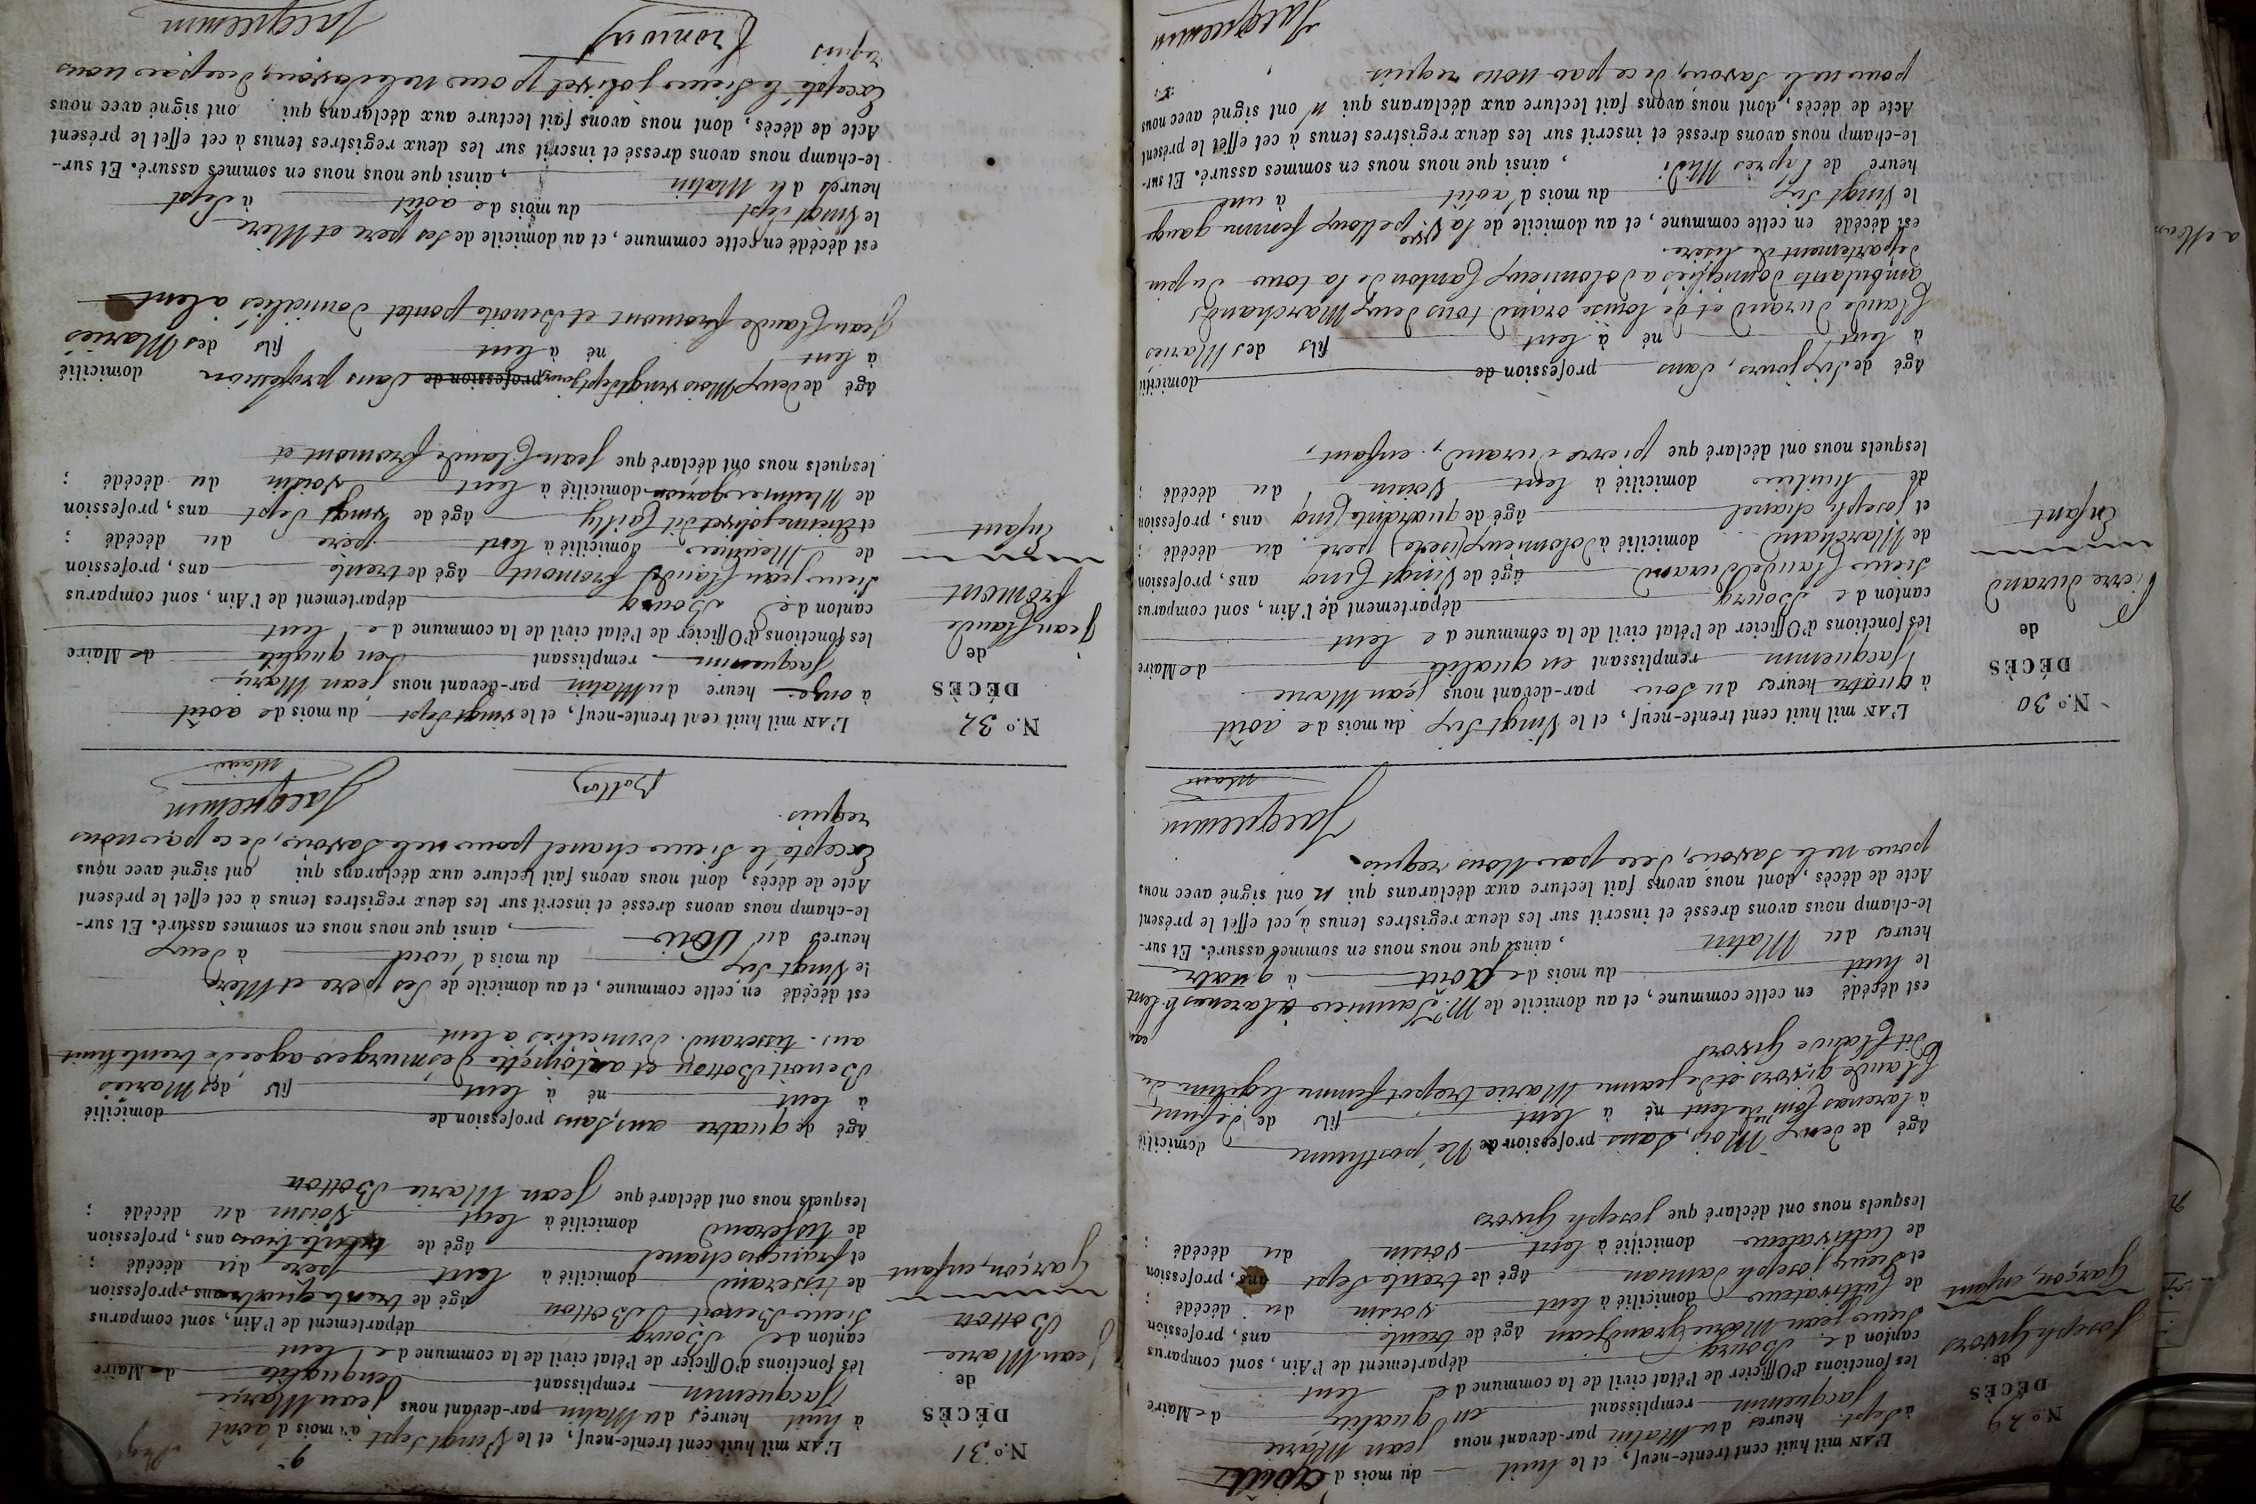 N.º 29
DÉCÈS
de
joseph Givors
Garçon, enfant
L'AN mil huit cent trente-neuf, et le huit du mois d août
à sept heures du Matin par-devant nous jean Marie
jacquemin remplissant en qualité de Maire
les fonctions d'Officier de l'état civil de la commune de lent
canton de Bourg département de l'Ain, sont comparus
Sieur jean Marie grandjean âgé de trente ans, profession
de Cultivateur domicilié à lent voisin du décédé ;
et Sieur joseph Damian âgé de trente Sept ans, profession
de Cultivateur domicilié à lent voisin du décédé ;
lesquels nous ont déclaré que joseph Givors
âgé de deux Mois, Sans profession de Né posthume domicilié
à larenas Comne de lent né à lent fils de defunt
Claude givors et de jeanne Marie trepot femme legitime du
dit Claude Givors
est décédé en cette commune, et au domicile de Mr. Saunier à larenas con. lent
le huit du mois de août à quatre
heures du Matin, ainsi que nous nous en sommes assuré. Et sur-
le-champ nous avons dressé et inscrit sur les deux registres tenus à cet effet le présent
Acte de décès, dont nous avons fait lecture aux déclarans qui n'ont signé avec nous
pour ne le Savoir, de ce par Nous requis.
Jacquemin
Maire
N.º 30
DÉCÈS
de
Pierre durand
Enfant
L'AN mil huit cent trente-neuf, et le Vingt Six du mois de août
à quatre heures du Soir par-devant nous jean Marie
jacquemin remplissant en qualité de Maire
les fonctions d'Officier de l'état civil de la commune de lent
canton de Bourg département de l'Ain, sont comparus
Sieur Claude Durand âgé de Vingt Cinq ans, profession
de Marchand domicilié à dolomieux (isère) pere du décédé ;
et joseph chanel âgé de quarante Cinq ans, profession
de huilier domicilié à lent Voisin du décédé ;
lesquels nous ont déclaré que pierre durand, enfant,
âgé de Six jours, Sans profession de domicilié
à lent né à lent fils des Mariés
Claude durand et de louise orand tous deux Marchands
ambulants domiciliés à dolomieux Canton de la tour du pin
département de lisère.
est décédé en cette commune, et au domicile de la Vve. pelloux femme gauge
le Vingt Six du mois d'août à une
heure de l'après Midi, ainsi que nous nous en sommes assuré. Et sur-
le-champ nous avons dressé et inscrit sur les deux registres tenus à cet effet le présent
Acte de décès, dont nous avons fait lecture aux déclarans qui n'ont signé avec nous
pour ne le Savoir, de ce par nous requis
Jacquemin
N.º 31
DÉCÈS
de
jean Marie
Botton
Garçon, enfant
L'AN mil huit cent trente-neuf, et le Vingt Sept du mois d'août
à huit heures du Matin par-devant nous jean Marie
jacquemin remplissant en qualité de Maire
les fonctions d'Officier de l'état civil de la commune de lent
canton de Bourg département de l'Ain, sont comparus
Sieur Benoit Botton âgé de trente quatre ans, profession
de tisserand domicilié à lent pere du décédé ;
et françois chanel âgé de trente trois ans, profession
de tisserand domicilié à lent Voisin du décédé ;
lesquels nous ont déclaré que jean Marie Botton
âgé de quatre ans, Sans profession de domicilié
à lent né à lent fils des Mariés
Benoit Botton et antoinette desmurges agée de trente huit
ans. tisserand. domiciliés à lent
est décédé en cette commune, et au domicile de Ses pere et Mere
le Vingt Six du mois d'août à deux
heures du Soir, ainsi que nous nous en sommes assuré. Et sur-
le-champ nous avons dressé et inscrit sur les deux registres tenus à cet effet le présent
Acte de décès, dont nous avons fait lecture aux déclarans qui ont signé avec nous
Excepté le Sieur chanel pour ne le Savoir, de ce par nous
requis.
Botton Jacquemin
Maire
N.º 32
DÉCÈS
de
jean Claude
fromont
Enfant
L'AN mil huit cent trente-neuf, et le vingt Sept du mois de août
à onze heure du Matin par-devant nous jean Marie
jacquemin remplissant en qualité de Maire
les fonctions d'Officier de l'état civil de la commune de lent
canton de Bourg département de l'Ain, sont comparus
Sieur jean Claude fromont âgé de trente ans, profession
de Meunier domicilié à lent pere du décédé ;
et Etienne jolivet dit Cailly âgé de Vingt Sept ans, profession
de Meunier garçon domicilié à lent Voisin du décédé ;
lesquels nous ont déclaré que jean Claude fromont
âgé de deux Mois vingt Sept jours profession de Sans profession domicilié
à lent né à lent fils des Mariés
jean Claude fromont et Benoite pontet domiciliés à lent
est décédé en cette commune, et au domicile de Ses pere et Mère
le Vingt Sept du mois de août à Sept
heures du Matin, ainsi que nous nous en sommes assuré. Et sur-
le-champ nous avons dressé et inscrit sur les deux registres tenus à cet effet le présent
Acte de décès, dont nous avons fait lecture aux déclarans qui ont signé avec nous
Excepté le Sieur jolivet pour ne le Savoir, de ce par nous
requis
fromont Jacquemin